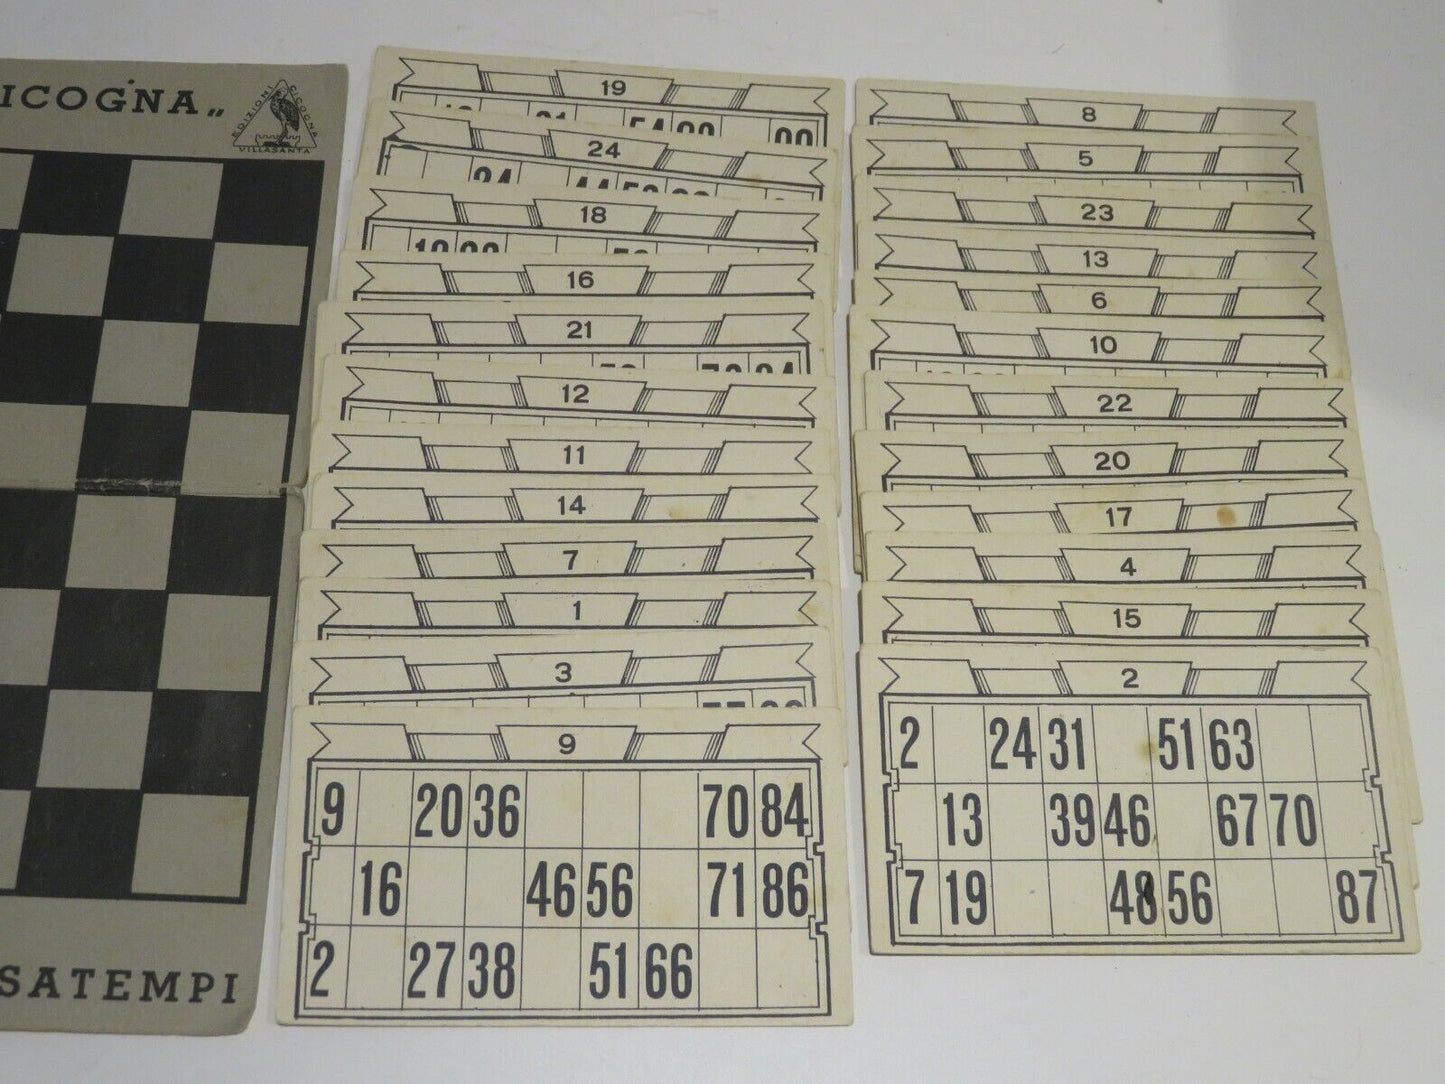 ICOGNA„
EDIZIONI CICOGNA
VILLASANTA
SATEMPI
19
24
18
16
21
12
11
14
7
1
3
9
9 20 36 70 84
16 46 56 71 86
2 27 38 51 66
8
5
23
13
6
10
22
20
17
4
15
2
2 24 31 51 63
13 39 46 67 70
7 19 48 56 87